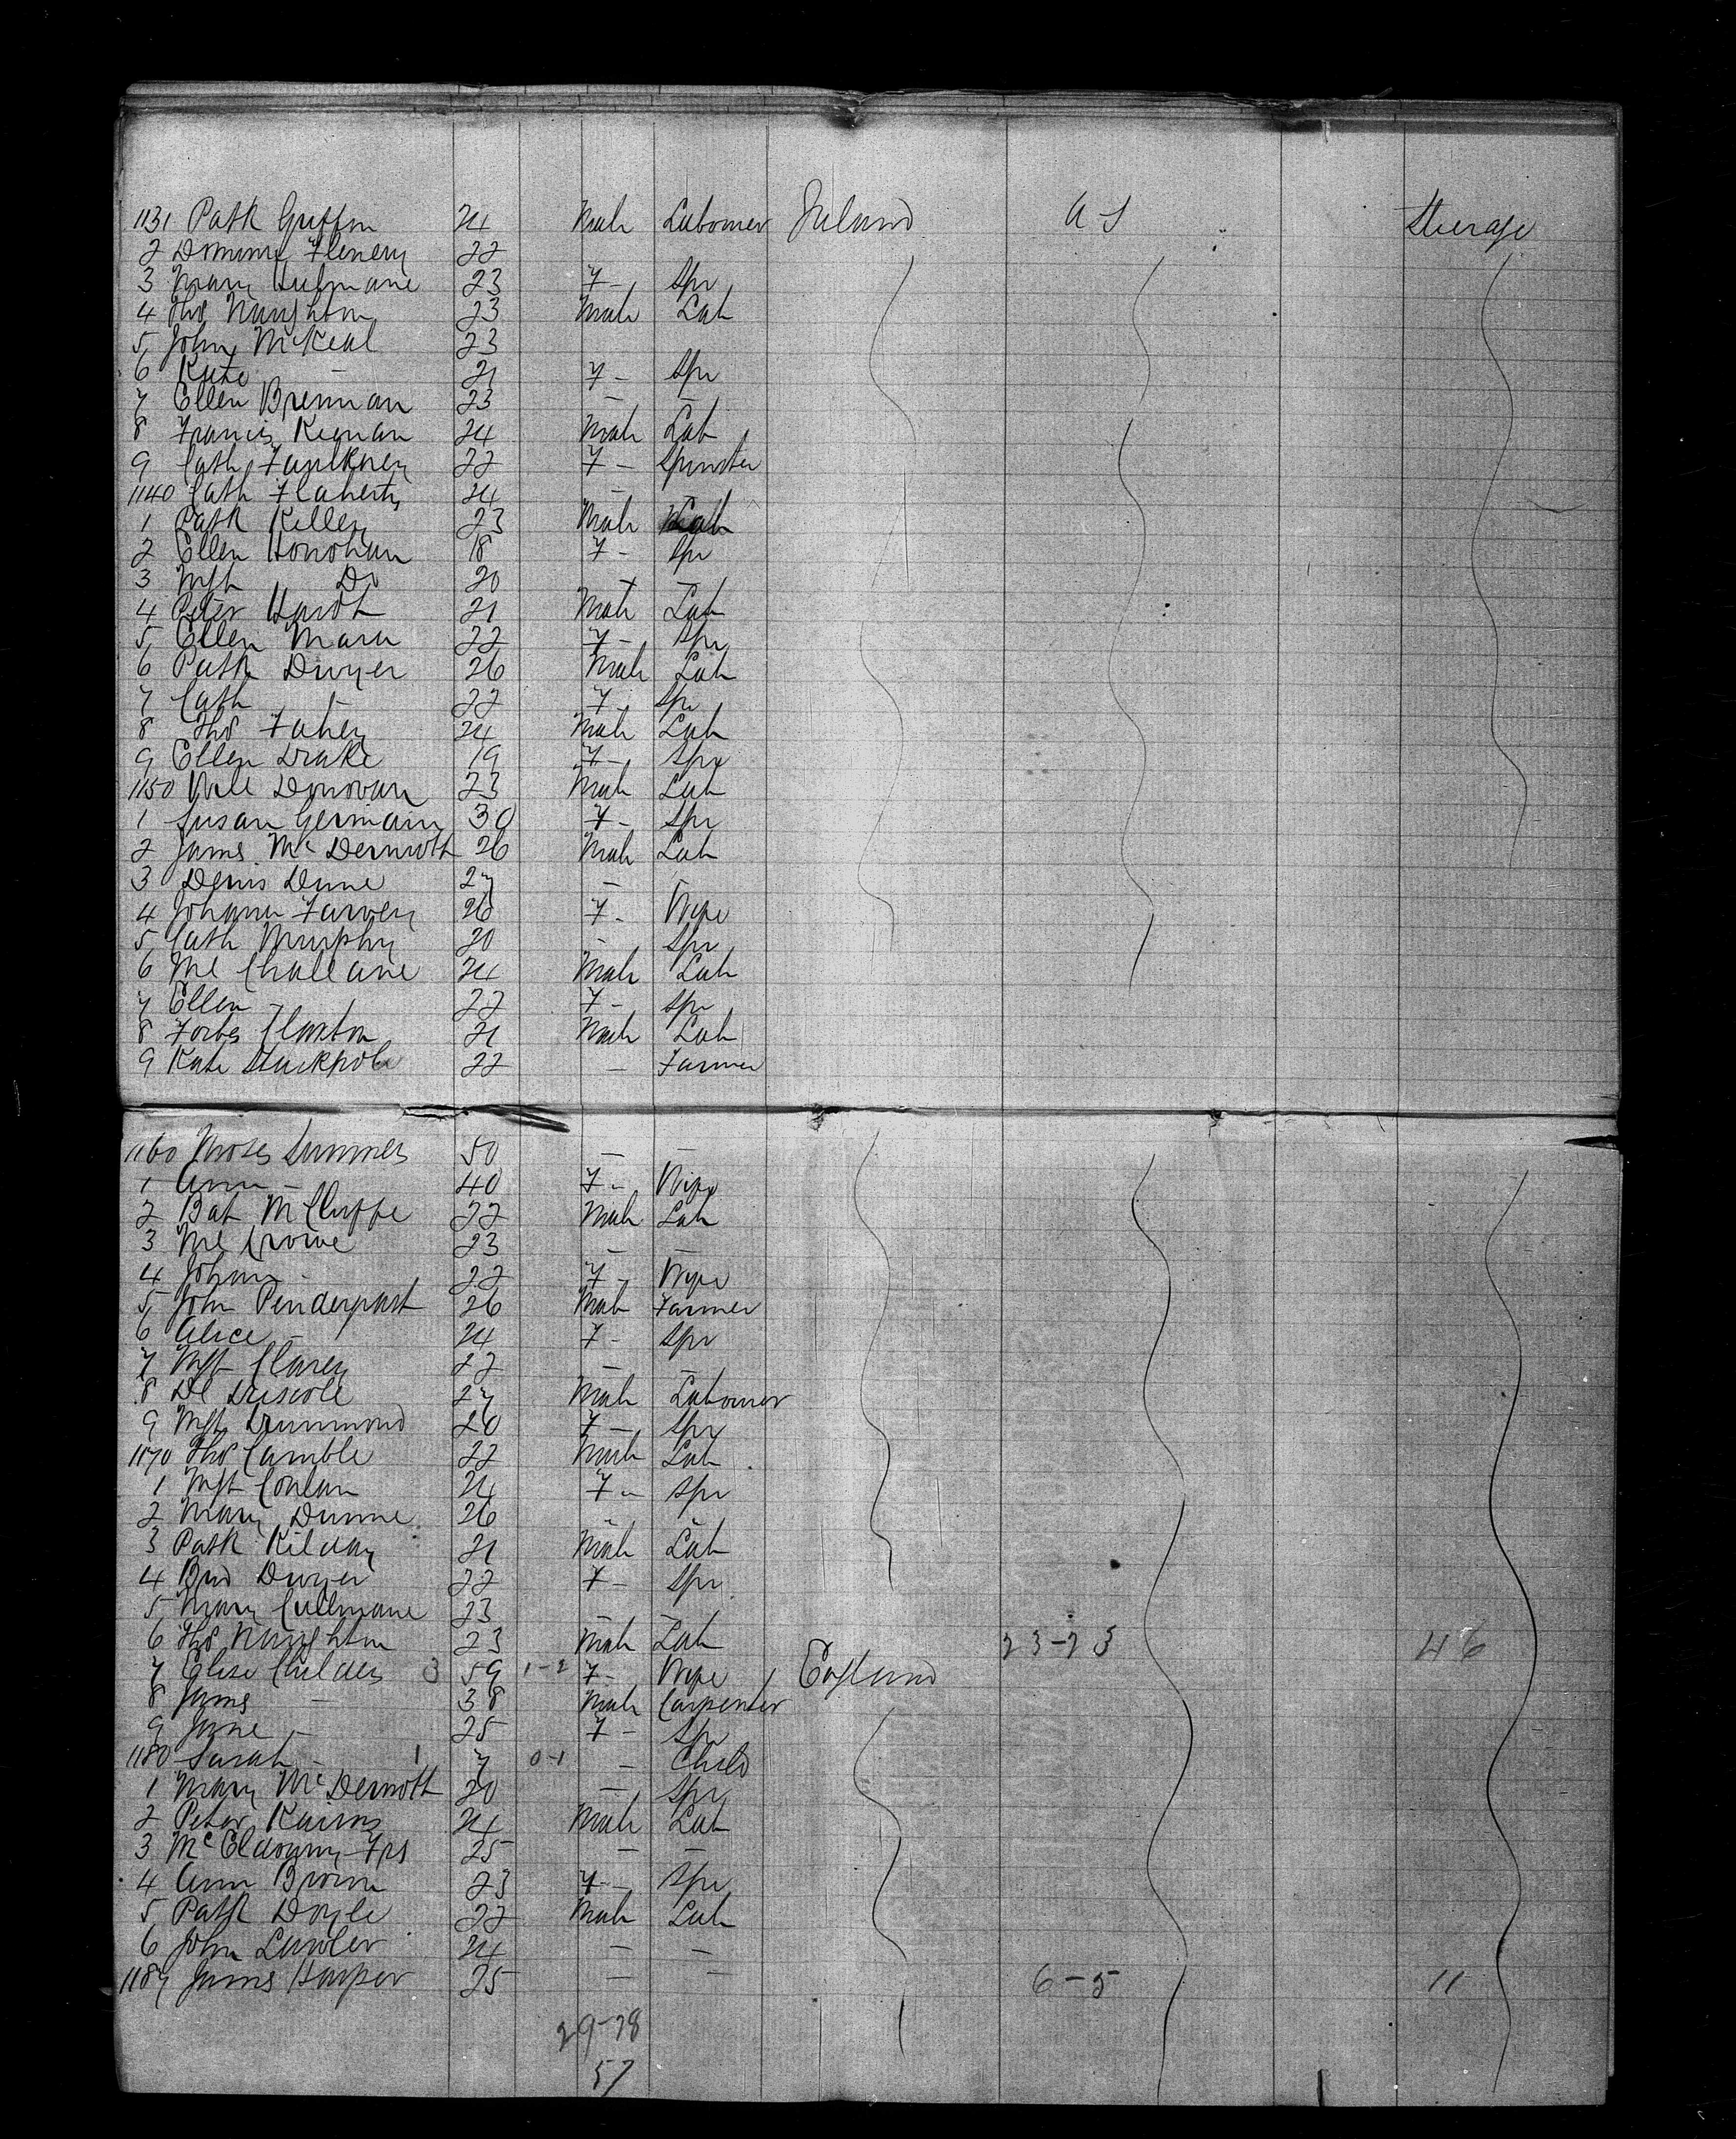 1131 Patk Griffin 24 Male Labourer Ireland U S Steerage
2 Flenery 22
3 Mary Culinane 23 F - Spr
4 Thos Naughton 23 Male Lab
5 John McKeal 23
6 Kate - 21 F - Spr
7 Ellen Brennan 23 - -
8 Francis Keenan 24 Male Lab
9 Cath Faulkney 22 F - Spinster
1140 Cath Flaherty 24 - -
1 Patk Killey 23 Male Lab
2 Ellen Honohan 18 F - Spr
3 Mgt Do 20 - -
4 Peter 21 Male Lab
5 Ellen Mara 22 F - Spr
6 Patk Dwyer 26 Male Lab
7 Cath - 22 F - Spr
8 Thos Fahey 24 Male Lab
9 Ellen Drake 19 F - Spr
1150 Will Donovan 23 Male Lab
1 Susan Germain 30 F - Spr
2 James McDermoth 26 Male Lab
3 Denis Dunne 27 - -
4 Johanna Farvey 26 F - Wife
5 Cath Murphy 20 - Spr
6 Ml Challane 24 Male Lab
7 Ellen - 22 F - Spr
8 Forbes Claxton 21 Male Lab
9 Kate Stackpole 22 - Farmer
1160 Moses Summers 50 - -
1 Ann - 40 F - Wife
2 Bat McCluffe 22 Male Lab
3 Ml Crowe 23 - -
4 Johana - 22 F - Wife
5 John Pendergast 26 Male Farmer
6 Alice - 24 F - Spr
7 Mgt Clarey 22 - -
8 Dl Driscole 27 Male Labourer
9 Mgt Drummond 20 F - Spr
1170 Thos Camble 22 Male Lab
1 Mgt Conlan 24 F - Spr
2 Mary Dunne 26 - -
3 Patk Kilday 21 Male Lab
4 Brid Dwyer 22 F - Spr
5 Mary Cullinane 23
6 Thos Naughton 23 Male Lab 23-23 46
7 Elise Childers 3 59 1-2 F - Wife England
8 James - 38 Male Carpenter
9 Jane - 25 F - Spr
1180 Sarah - 1 7 0-1 - Child
1 Mary McDermoth 20 - Spr
2 Peter Kairns 24 Male Lab
3 Frs 25 - -
4 Ann Brown 23 F - Spr
5 Patk Doyle 22 Male Lab
6 John Lawler 24 - -
1187 James Harper 25 - - 6-5 11
29-28
57